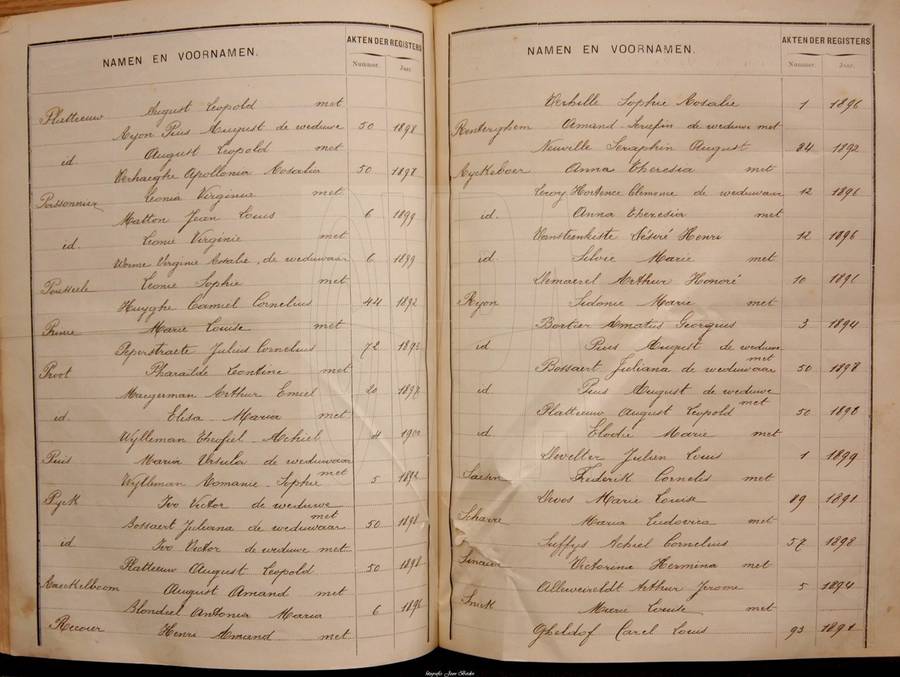 NAMEN EN VOORNAMEN.
AKTEN DER REGISTERS
Nummer. Jaar.
Platteeuw August Leopold met
Ryon Pius August de weduwe 50 1898
id August Leopold met
Verhaeghe Apollonia Rosalia 50 1898
Leonia Virginie met
Matton Jean Louis 6 1899
id. Leonie Virginie met
Virginie Rosalie, de weduwaar 6 1899
Pousseele Leonie Sophie met
Huyghe Camiel Cornelius 44 1892
Marie Louise met
Peperstraete Julius Cornelius 72
Proot Pharailde Leontine met
Arthur Emiel 20
id. Elisa Maria met
Wylleman Theofiel Achiel 4 1900
Puis Maria Ursula de weduwaar
met
Wylleman Romanie Sophie 5 1892
Pyck Ivo Victor de weduwe
met
Bossaert Juliana de weduwaar 50 1898
id Ivo Victor de weduwe met
Platteeuw August Leopold 50 1898
Raeckelboom August Amand met
Blondeel Antonia Maria 6 1896
Recour Henri Amand met
NAMEN EN VOORNAMEN.
AKTEN DER REGISTERS
Nummer. Jaar.
Verhille Sophie Rosalie 1 1896
Renterghem Amand Serafin de weduwe met
Neuville Seraphin August 24 1892
Ryckeboer Anna Theresia met
Leroy Hortence Clemence de weduwaar 12 1896
id. Anna Theresia met
Vansteenkiste Désiré Henri 12 1896
id. Silvie Marie met
Demaerel Arthur Honoré 10 1891
Ryon Sidonie Marie met
Bortier Amatus Georgius 3 1894
id Pius August de weduwe
met
Bossaert Juliana de weduwaar 50 1898
id Pius August de weduwe
met
Platteeuw August Leopold 50 1898
id. Elodie Marie met
Develler Julien Louis 1 1899
Frederik Cornelis met
Devos Marie Louise 89 1891
Maria Ludovica met
Suffys Achiel Cornelius 1898
Victorina Hermina met
Alleweireldt Arthur Jerome 5 1894
Marie Louise met
Gheldof Carel Louis 93 1891